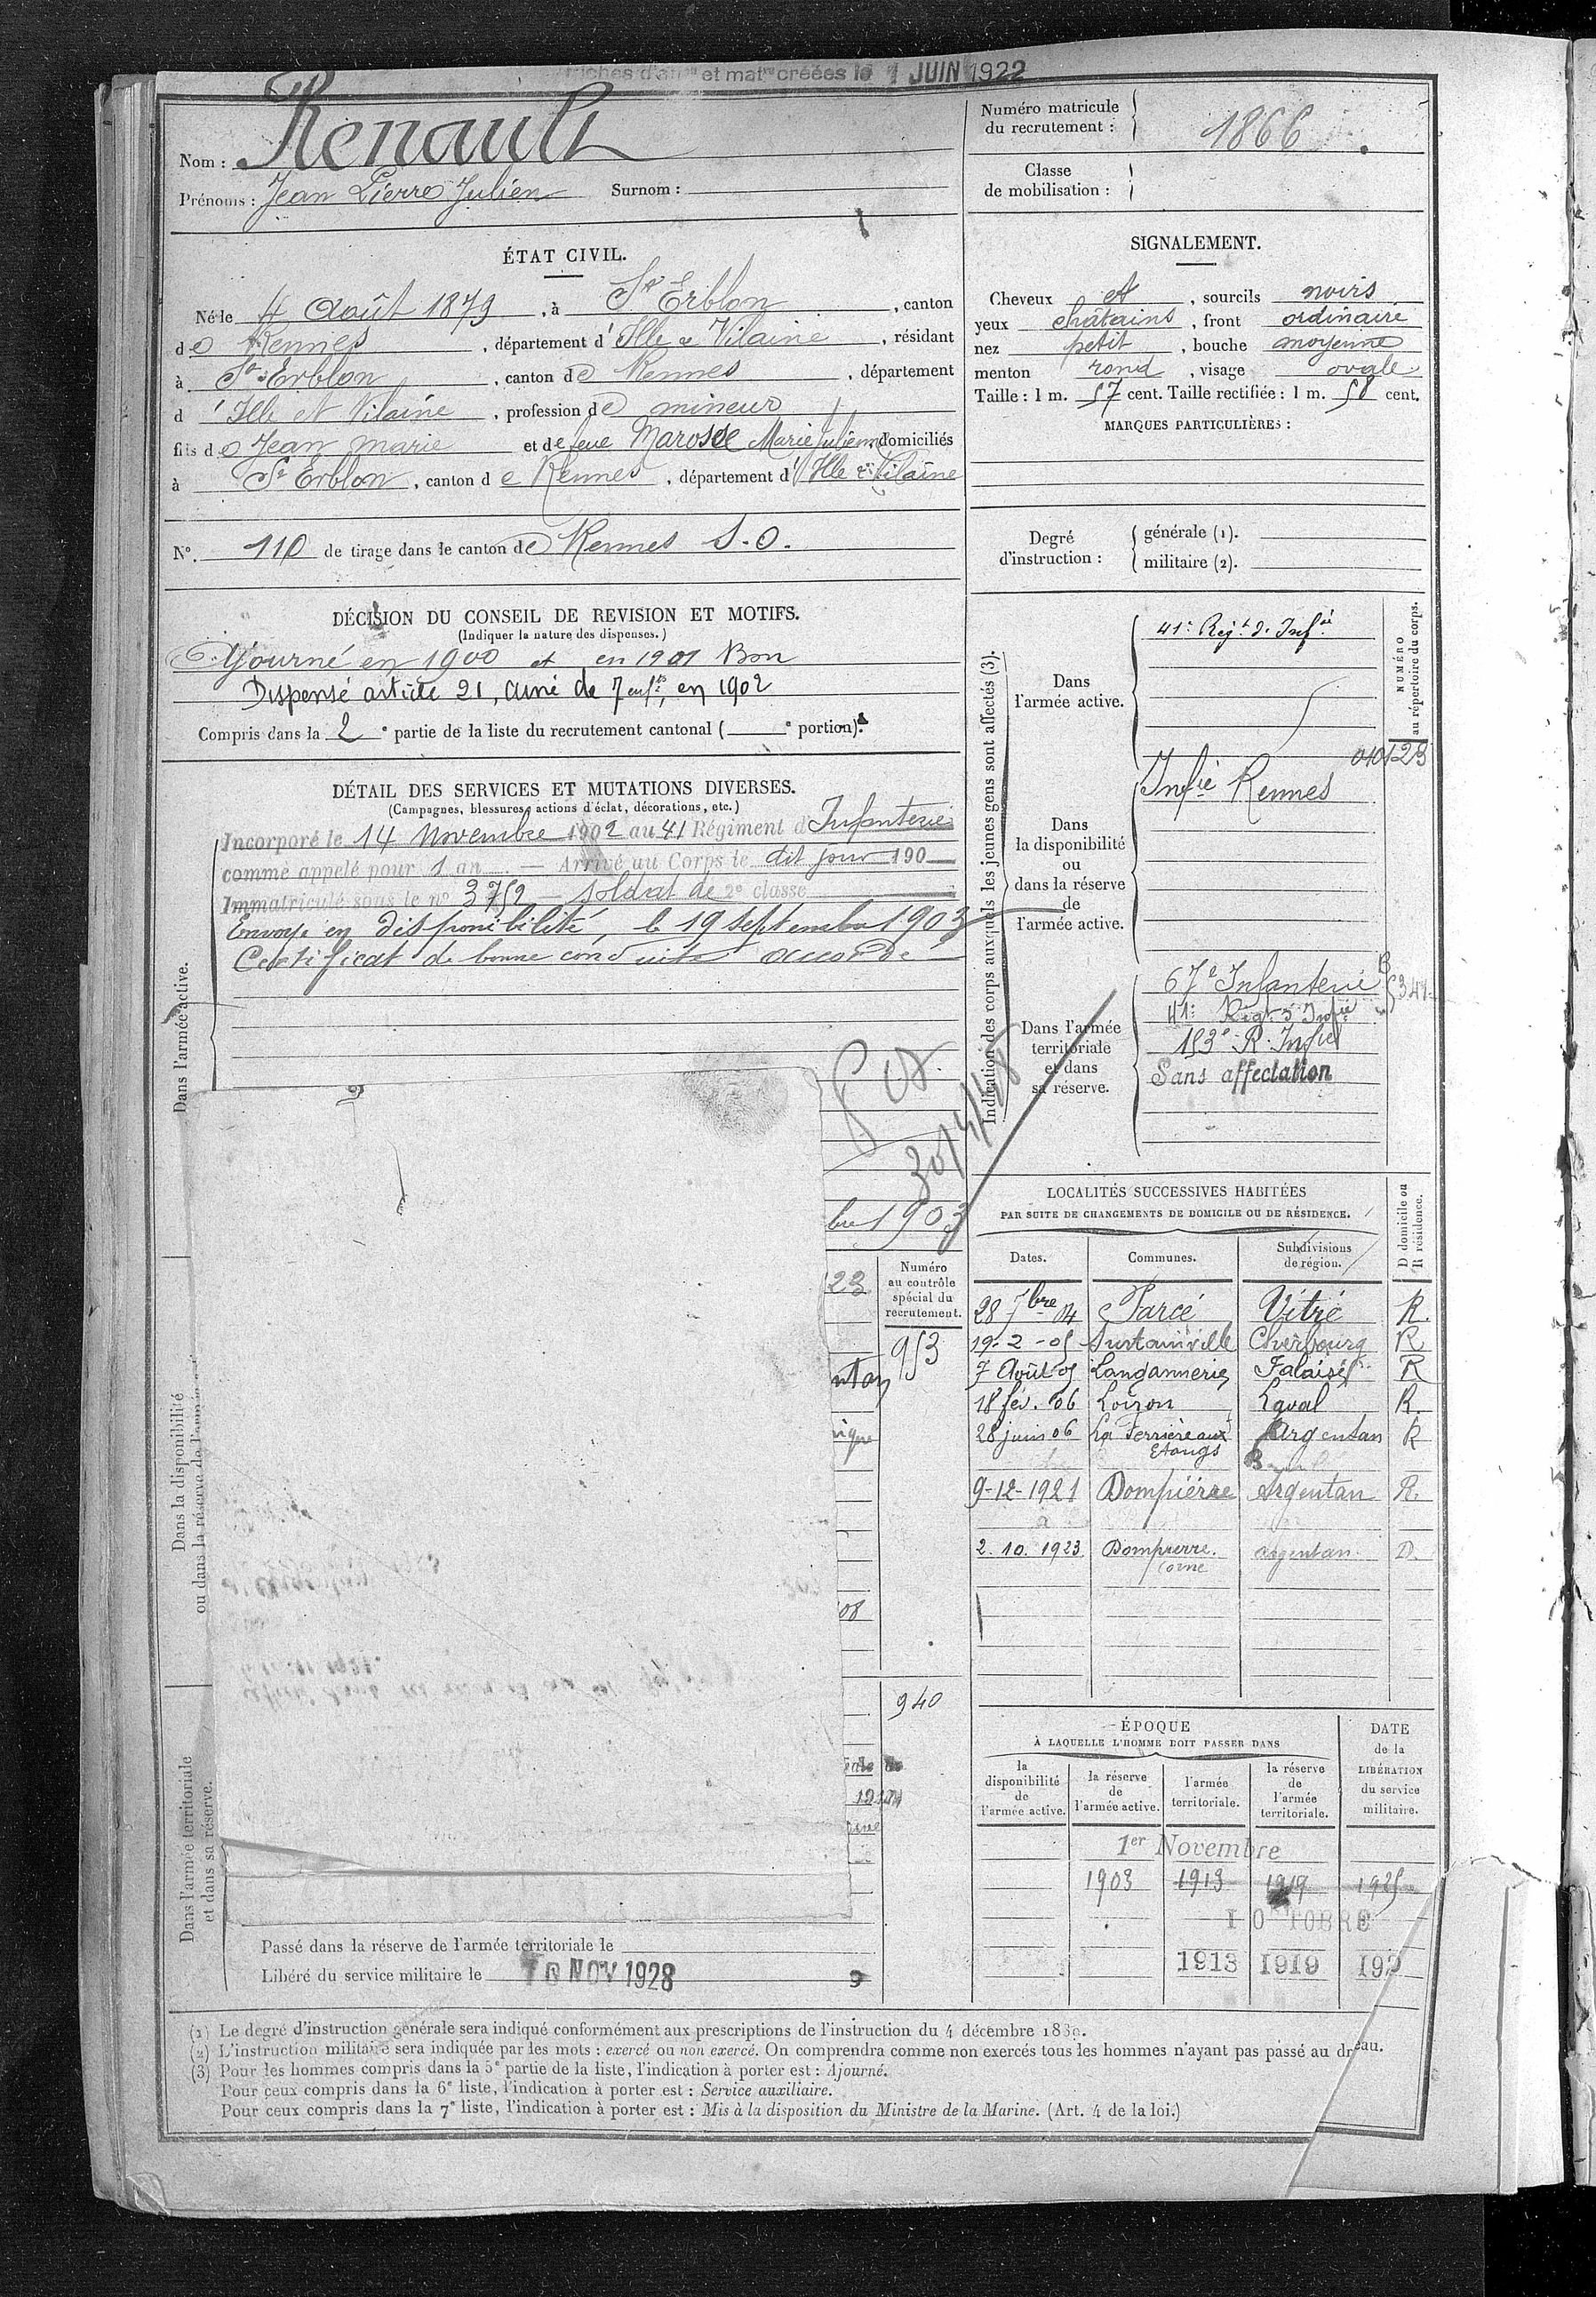 et mat créées le 1 JUIN 1922
Nom : Renault
Prénoms : Jean Pierre Julien Surnom :
ÉTAT CIVIL.
Né le 4 Août 1879, à St Erblon, canton
de Rennes, département d'Ille & Vilaine, résidant
à St Erblon, canton de Rennes, département
d'Ille et Vilaine, profession de mineur
fils de Jean Marie et de feue Marie Julienne domiciliés
à St Erblon, canton de Rennes, département d'Ille & Vilaine
N°. 110 de tirage dans le canton de Rennes S.O.
DÉCISION DU CONSEIL DE REVISION ET MOTIFS.
(Indiquer la nature des dispenses.)
Ajourné en 1900 et en 1901 Bon
Dispensé article 21, ainé de 7 enfts, en 1902
Compris dans la 2e partie de la liste du recrutement cantonal ( e portion).
DÉTAIL DES SERVICES ET MUTATIONS DIVERSES.
(Campagnes, blessures, actions d'éclat, décorations, etc.)
Dans l'armée active.
Incorporé le 14 Novembre 1902 au 41 Régiment d'Infanterie
comme appelé pour 1 an — Arrivé au Corps le dit jour 190
Immatriculé sous le n° 3752 — soldat de 2e classe
Envoyé en disponibilité, le 19 septembre 1903
Certificat de bonne conduite accordé
bre 1903
Dans la disponibilité
ou dans la réserve de l'armée
23
Numéro
au contrôle
spécial du
recrutement.
953
08
Dans l'armée territoriale
et dans sa réserve.
940
Passé dans la réserve de l'armée territoriale le
Libéré du service militaire le 10 NOV 1928
Numéro matricule
du recrutement : 1866
Classe
de mobilisation :
SIGNALEMENT.
Cheveux et, sourcils noirs
yeux châtains, front ordinaire
nez petit, bouche moyenne
menton rond, visage ovale
Taille : 1 m. 57 cent. Taille rectifiée : 1 m. 58 cent.
MARQUES PARTICULIÈRES :
Degré
d'instruction :
générale (1).
militaire (2).
Indication des corps auxquels les jeunes gens sont affectés (3).
NUMÉRO
au répertoire du corps.
Dans
l'armée active.
41e Regt d'Infie
Dans
la disponibilité
ou
dans la réserve
de
l'armée active.
Infie Rennes
Dans l'armée
territoriale
et dans
sa réserve.
67e Infanterie
41e Regt d'Infie
153e R. Infie
Sans affectation
LOCALITÉS SUCCESSIVES HABITÉES
PAR SUITE DE CHANGEMENTS DE DOMICILE OU DE RÉSIDENCE.
Dates. Communes. Subdivisions de région. D domicile ou R résidence.
28 7bre 04 Parcé Vitré R.
19-2-05 Surtainville Cherbourg R
7 Août 05 Langannerie Falaise R
18 fév. 06 Loiron Laval R.
28 juin 06 La Ferrière aux Etangs Argentan R
9-12-1921 Dompierre Argentan R.
2.10.1923 Dompierre. Orne argentan. D.
ÉPOQUE
À LAQUELLE L'HOMME DOIT PASSER DANS
DATE
de la
LIBÉRATION
du service
militaire.
la
disponibilité
de
l'armée active.
la réserve
de
l'armée active.
l'armée
territoriale.
la réserve
de
l'armée
territoriale.
1er Novembre
1903 1913 1919 1925
1913 1919 192
(1) Le degré d'instruction générale sera indiqué conformément aux prescriptions de l'instruction du 4 décembre 1889.
(2) L'instruction militaire sera indiquée par les mots : exercé ou non exercé. On comprendra comme non exercés tous les hommes n'ayant pas passé au dreau.
(3) Pour les hommes compris dans la 5e partie de la liste, l'indication à porter est : Ajourné.
Pour ceux compris dans la 6e liste, l'indication à porter est : Service auxiliaire.
Pour ceux compris dans la 7e liste, l'indication à porter est : Mis à la disposition du Ministre de la Marine. (Art. 4 de la loi.)